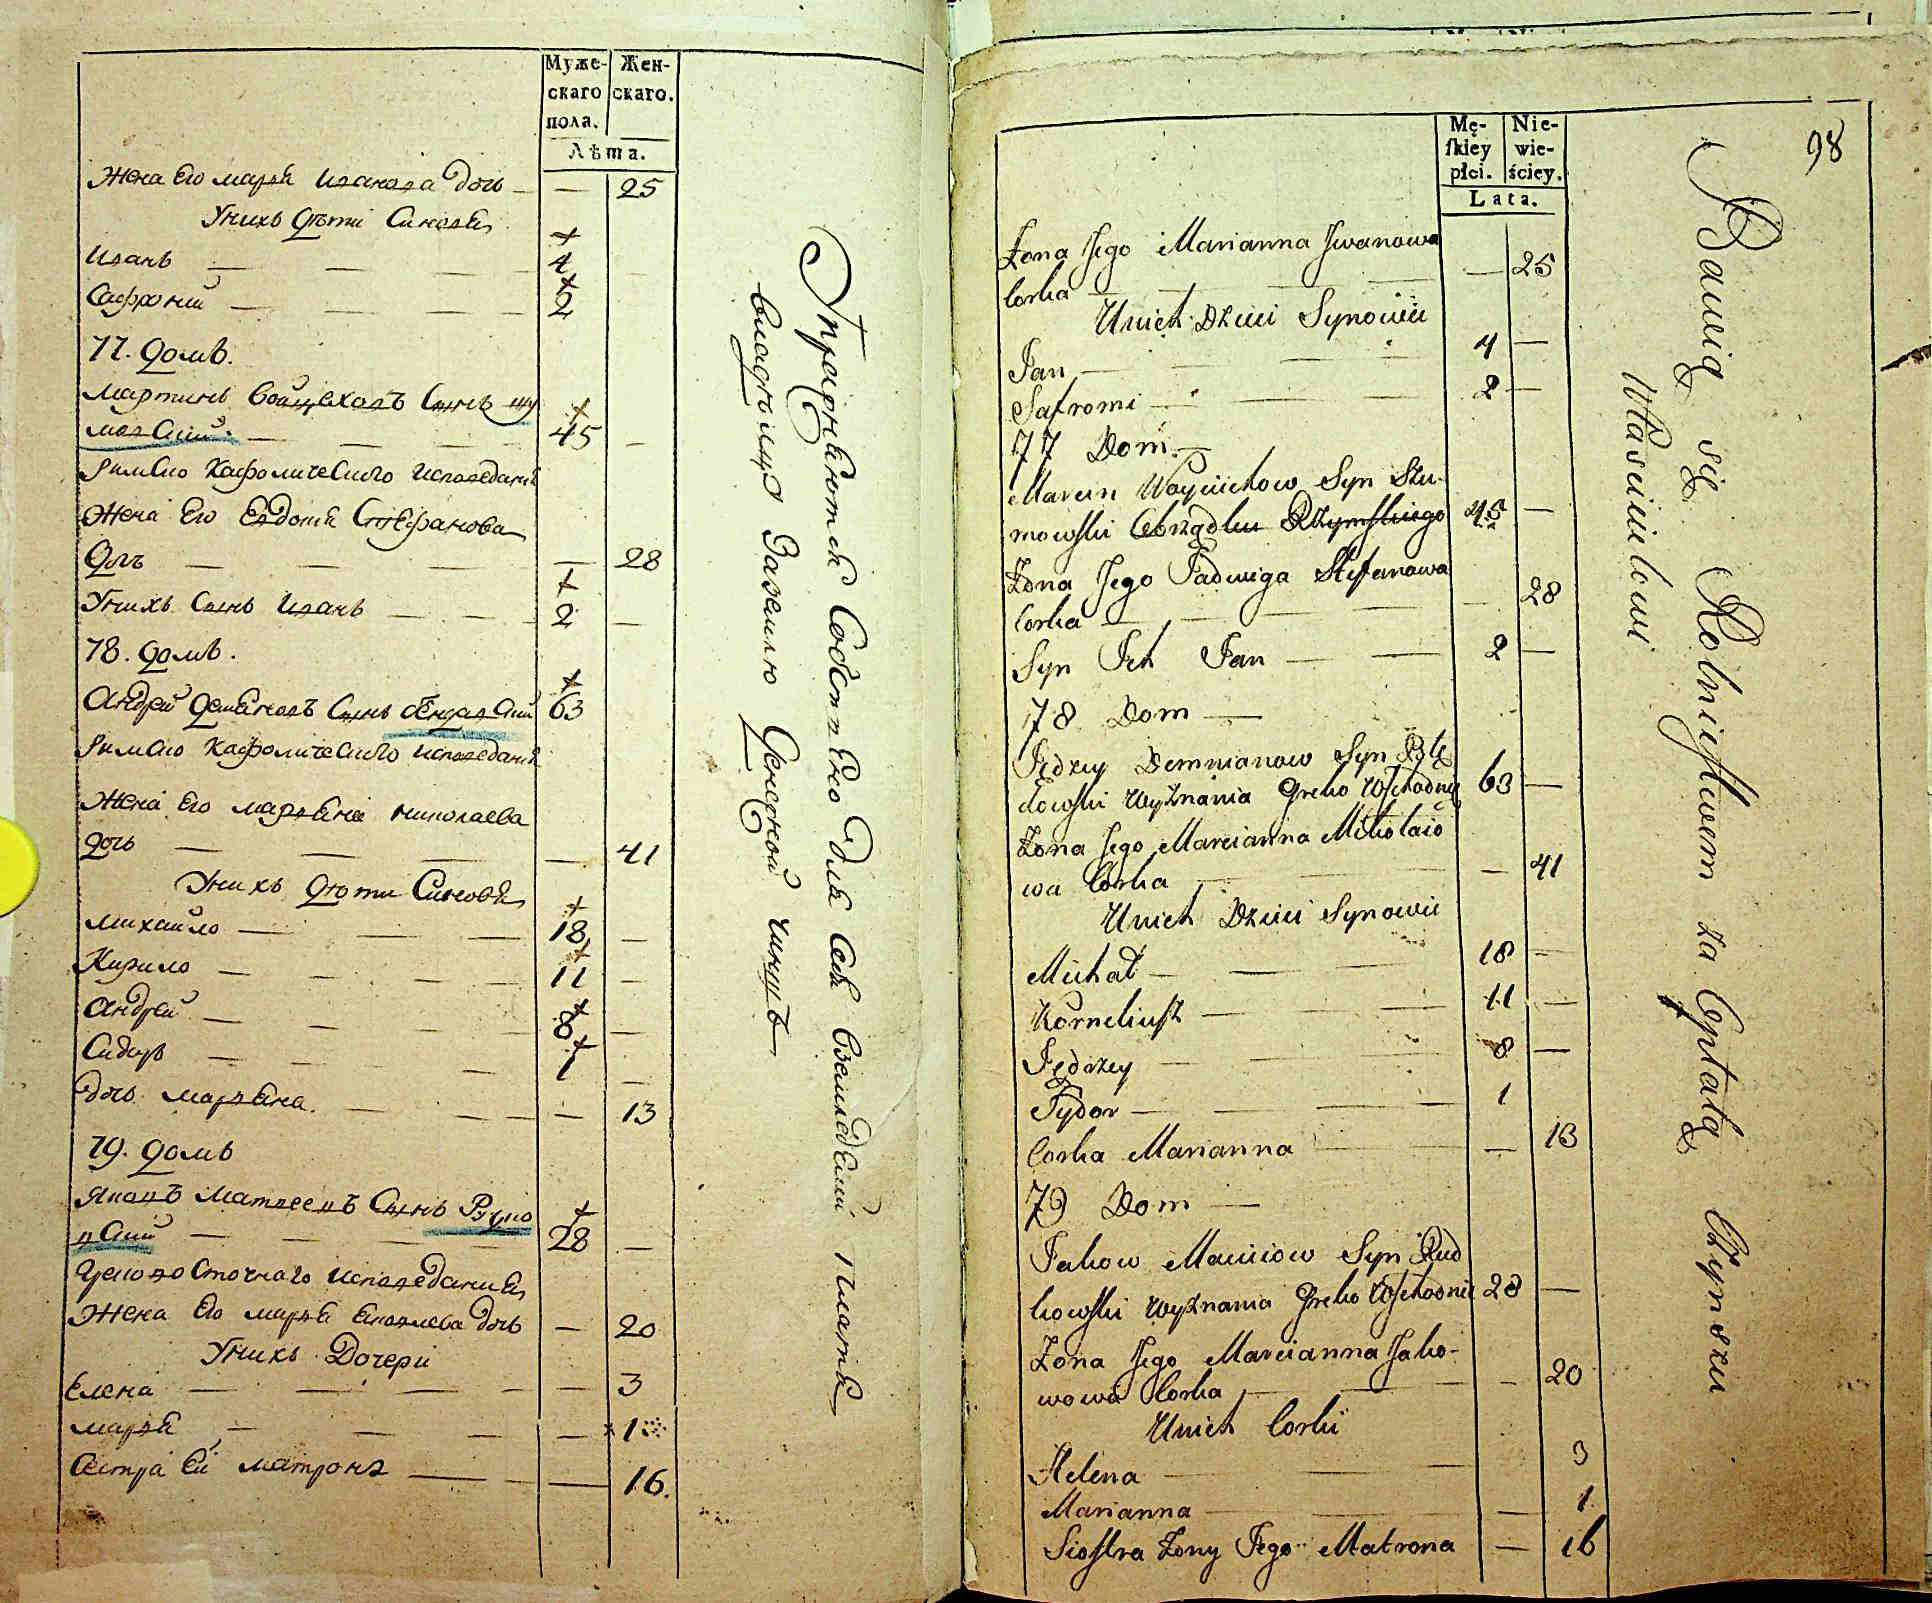 Муже-
скаго
пола.
Жен-
скаго.
Лѣта.
Жена Его марья Иванова дочь — — 25
Унихъ дѣти Синовья
Иванъ — 4
Сафроний — 2
77. домъ.
мартинъ Войцеховъ Синъ шу
мовский — 45 —
Римско Кафолическаго исповеданія
Жена Его Евдокія Стефанова
дочъ — — 28
Унихъ Синъ Иванъ — 2 —
78. домъ.
Андрей Демяновъ Синъ 63
Римско Кафолическаго исповеданія
Жена Его марьяна николаева
дочь — — 41
Унихъ дѣти Синовья
михайло — 18 —
Кирило — 11 —
андрей — 8 —
Сидоръ — 1 —
дочь марьяна. — — 13
79. домъ
Яковъ Матвеевъ Синъ Рудко
вский — 28 —
Грековосточнаго исповедания
Жена Его марья Яковлева дочь — 20
Унихъ Дочери
Елена — — 3
марья — — 1
Сестра Ей матрона — — 16.
Упражняются Собственно для себя вземледелии и платят
владѣлцу Заземлю Денежной чиншъ
98
Mę-
skiey
płci.
Nie-
wie-
ściey.
Lata.
Żona Jego Marianna Jwanowa
Corka — — 25
Unich Dzieci Synowie
Jan — 4 —
Safroni — 2 —
77 Dom —
Marcin Woyciechow Syn Szu-
mowski Obrządku Rzymskiego 45 —
Żona Jego Jadwiga Stefanowa
Corka — — 28
Syn Jch Jan — 2 —
78 Dom —
Jędrzey Demnianow Syn
dowski Wyznania Greko Wschodniey 63 —
Żona Jego Marcianna Mikołaio
wa Corka — — 41
Unich Dzieci Synowie
Michał — 18 —
Korneliusz — 11 —
Jędrzey — 8 —
Sydor — 1
Corka Marianna — — 13
79 Dom —
Jakow Maciiow Syn Rud
kowski Wyznania Greko Wschodnie 28 —
Żona Jego Marcianna Jako-
wowa Corka — — 20
Unich Corki
Helena — 3
Marianna — — 1
Siostra Żony Jego Matrona — 16
Bawią się Rolnictwem za Opłatą Czynszu
Właścicielowi